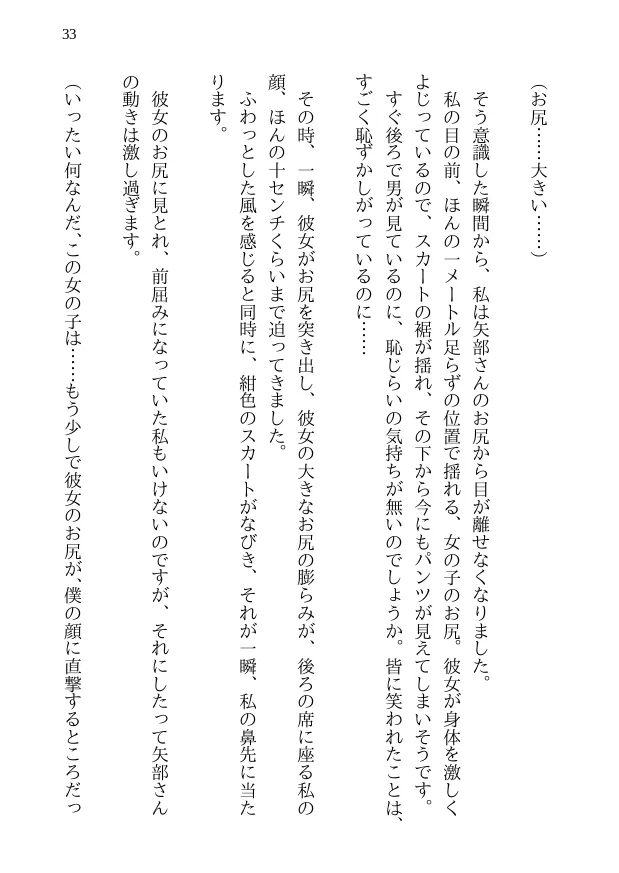 33
（お尻……大きい……）
そう意識した瞬間から、私は矢部さんのお尻から目が離せなくなりました。
私の目の前、ほんの一メートル足らずの位置で揺れる、女の子のお尻。彼女が身体を激しく
よじっているので、スカートの裾が揺れ、その下から今にもパンツが見えてしまいそうです。
すぐ後ろで男が見ているのに、恥じらいの気持ちが無いのでしょうか。皆に笑われたことは、
すごく恥ずかしがっているのに……
その時、一瞬、彼女がお尻を突き出し、彼女の大きなお尻の膨らみが、後ろの席に座る私の
顔、ほんの十センチくらいまで迫ってきました。
ふわっとした風を感じると同時に、紺色のスカートがなびき、それが一瞬、私の鼻先に当た
ります。
彼女のお尻に見とれ、前屈みになっていた私もいけないのですが、それにしたって矢部さん
の動きは激し過ぎます。
（いったい何なんだ、この女の子は……もう少しで彼女のお尻が、僕の顔に直撃するところだっ